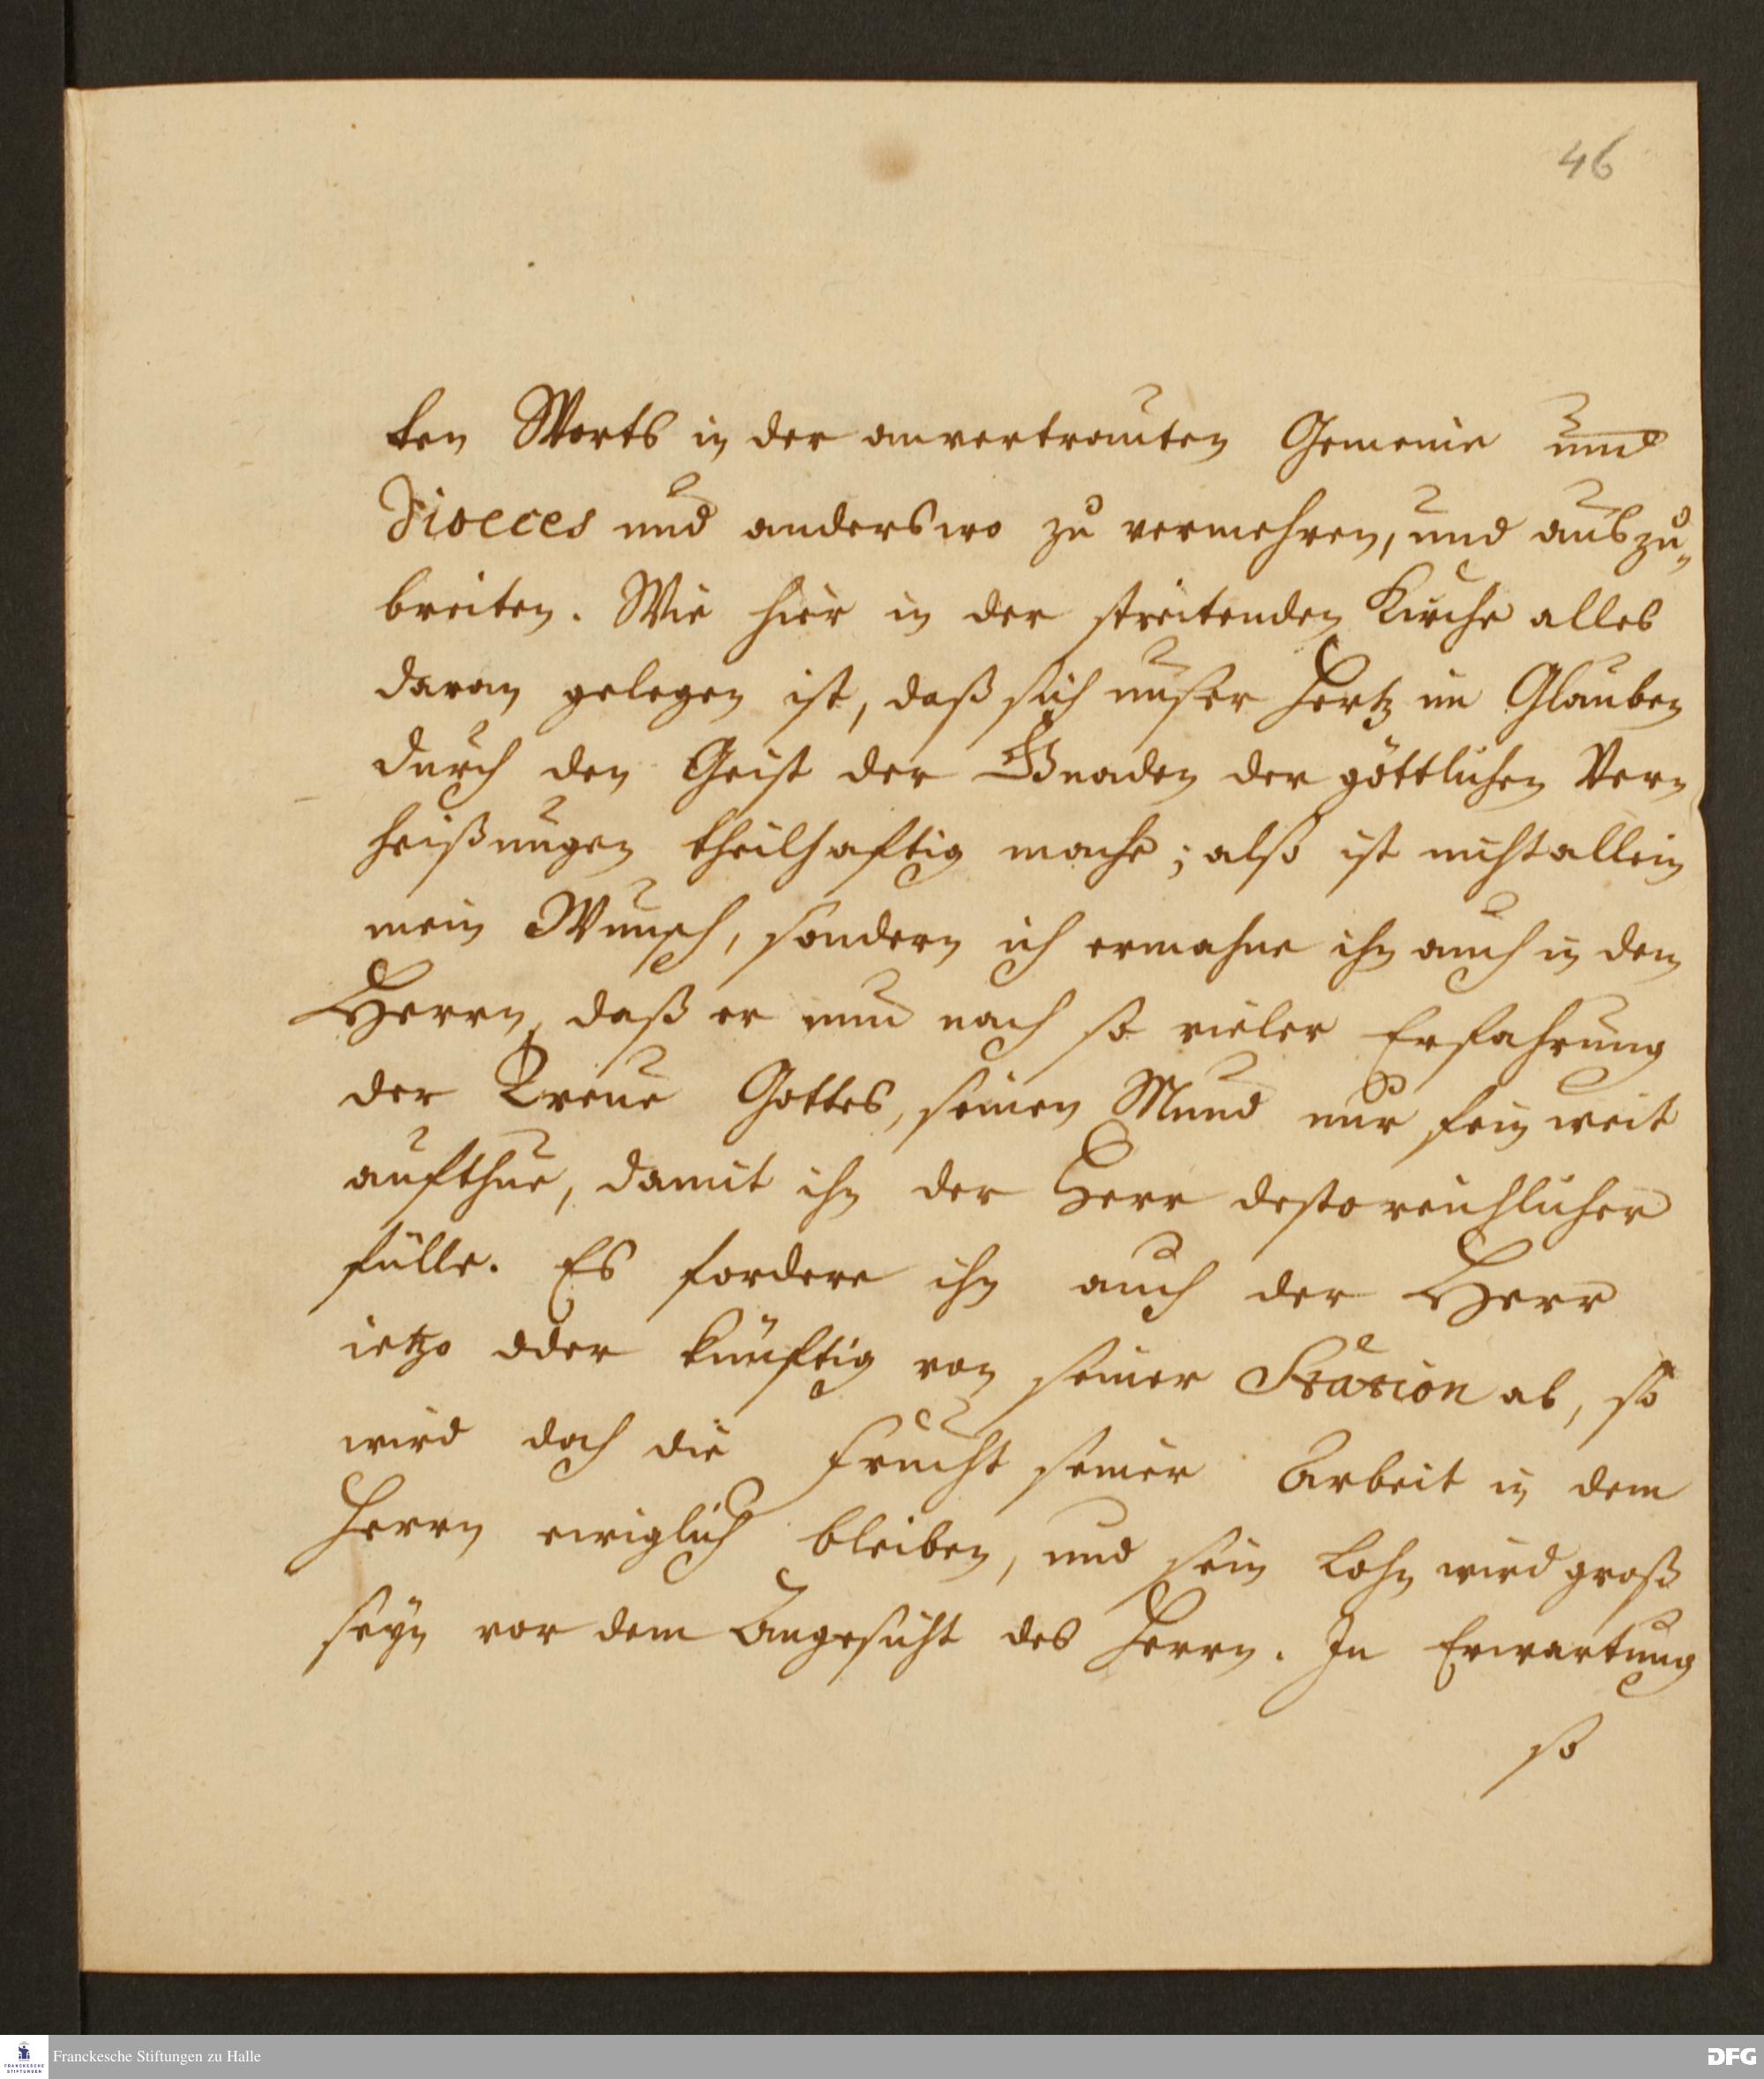 46
ten Worts in der anvertrauten Gemeine und
Dioeces und anderswo zu vermehren, und auszu„
breiten. Wie hier in der streitenden Kirche alles
daran gelegen ist, daß sich unser Hertz im Glauben
durch den Geist der Gnaden der göttlichen Ver„
heißungen theilhaftig mache; also ist nicht allein
mein Wunsch, sondern ich ermahne ihn auch in dem
Herrn, daß er nun nach so vieler Erfahrung
der Treue Gottes, seinen Mund nur fein weit
aufthue, damit ihn der Herr desto reichlicher
fülle. Es fordere ihn auch der Herr
ietzo oder künftig von seiner Station ab, so
wird doch die Frucht seiner Arbeit in dem
Herrn ewiglich bleiben, und sein Lohn wird groß
seyn vor dem Angesicht des Herrn. In Erwartung
so
Franckesche Stiftungen zu Halle
DFG